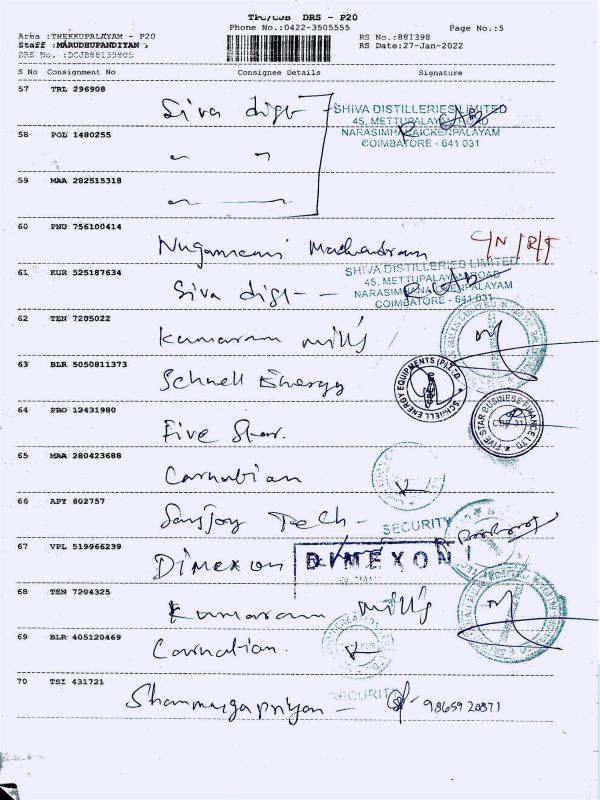 TPC/CJB DRS - P20
Phone No.:0422-3505555
Page No.:5
Area :THEKKUPALAYAM - P20
Staff :MARUDHUPANDIYAN
DRS No. :DCJB88139805
RS No.:881398
RS Date:27-Jan-2022
S No Consignment No Consignee Details Signature
57 TRL 296908
Siva digt
SHIVA DISTILLERIES LIMITED
45, METTUPALAYAM ROAD
NARASIMHANAICKENPALAYAM
COIMBATORE - 641 031
58 POL 1480255
59 MAA 282515318
60 PNU 756100414
C/N/R/T
61 KUR 525187634
Siva digt -
SHIVA DISTILLERIES LIMITED
45, METTUPALAYAM ROAD
NARASIMHANAICKENPALAYAM
COIMBATORE - 641 031
62 TEN 7205022
Kumaram mills
63 BLR 5050811373
Schnell Energy
SCHNELL ENERGY EQUIPMENTS (P) LTD
64 PRO 12431980
Five Star.
FIVE STAR BUSINESS FINANCE LTD
CBE-31
65 MAA 280423688
Carnatian
66 APT 802757
Sanjoy Tech -
SECURITY
67 VPL 519966239
Dimexon
DIMEXON
68 TEN 7204325
Kumaram mills
69 BLR 405120469
Carnatian.
70 TSI 431721
Shanmugapriyan -
SECURITY
9865920871